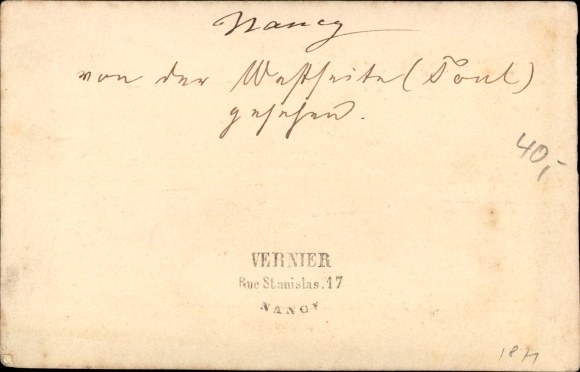 Nancy
von der Westseite (Toul)
gesehen.
40,-
VERNIER
Rue Stanislas. 17
NANCY
1871